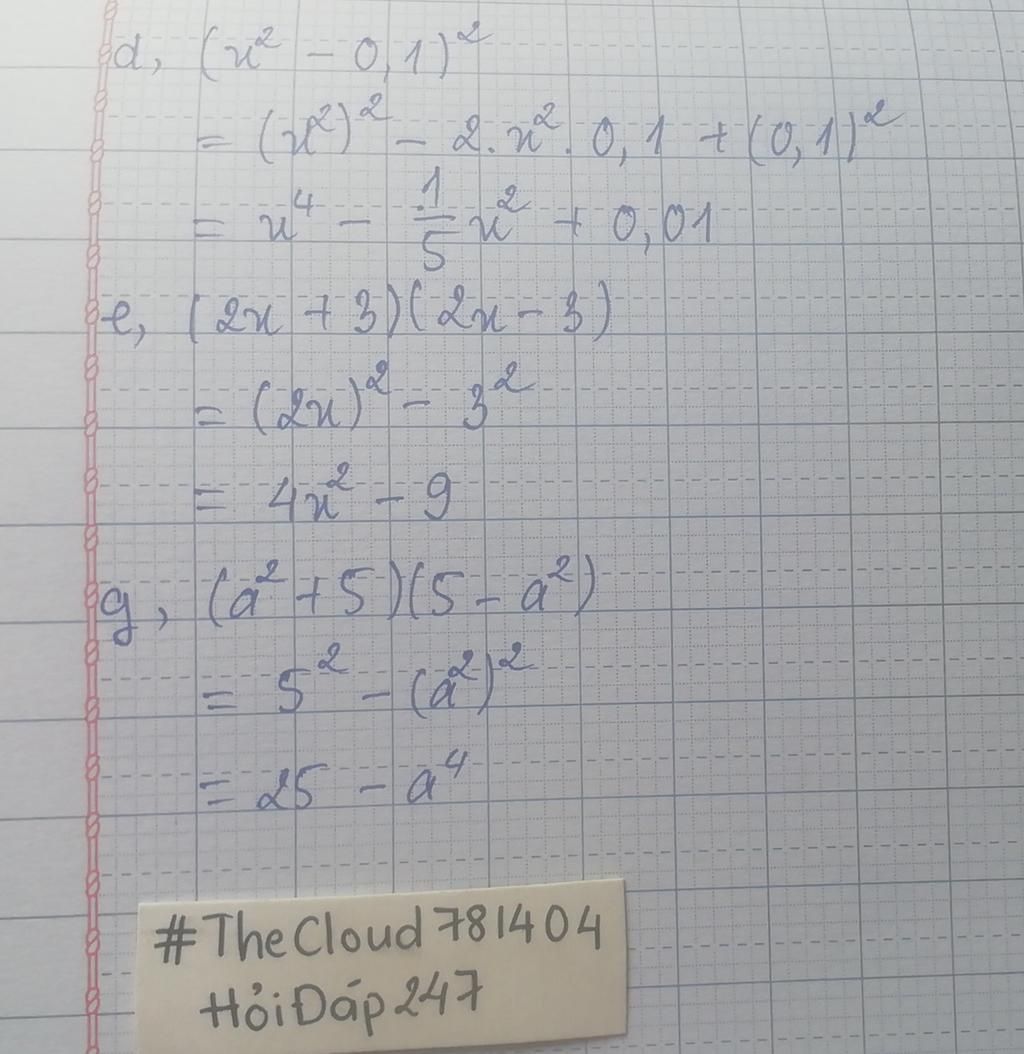 d, (x² - 0,1)²
= (x²)² - 2.x².0,1 + (0,1)²
= x⁴ - 1/5 x² + 0,01
e, (2x + 3)(2x - 3)
= (2x)² - 3²
= 4x² - 9
g, (a² + 5)(5 - a²)
= 5² - (a²)²
= 25 - a⁴
#TheCloud781404
HỏiĐáp247